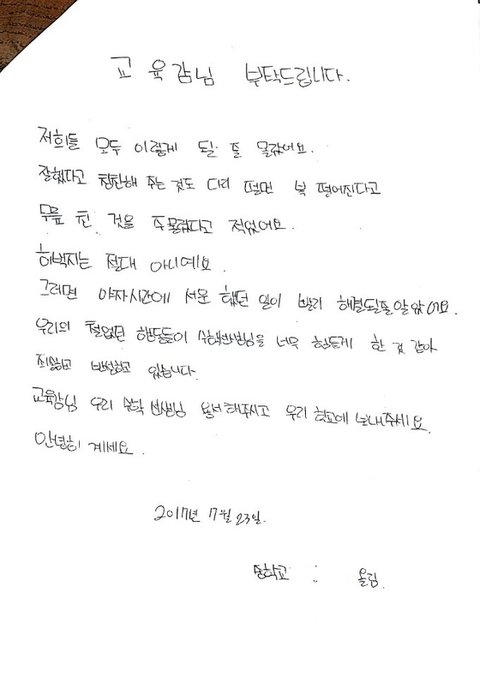 교육감님 부탁드립니다.
저희들 모두 이렇게 될 줄 몰랐어요.
잘했다고 칭찬해 주는 것도 다리 떨면 복 떨어진다고
무릎 친 것을 주물렀다고 적었어요.
허벅지는 절대 아니예요.
그러면 야자시간에 서운 했던 일이 빨리 해결될줄알았어요.
우리의 철없던 행동들이 수학선생님을 너무 힘들게 한 것 같아
죄송하고 반성하고 있습니다.
교육감님 우리 수학 선생님 용서해주시고 우리 학교에 보내주세요.
안녕히 계세요.
2017년 7월 23일.
중학교 : 올림